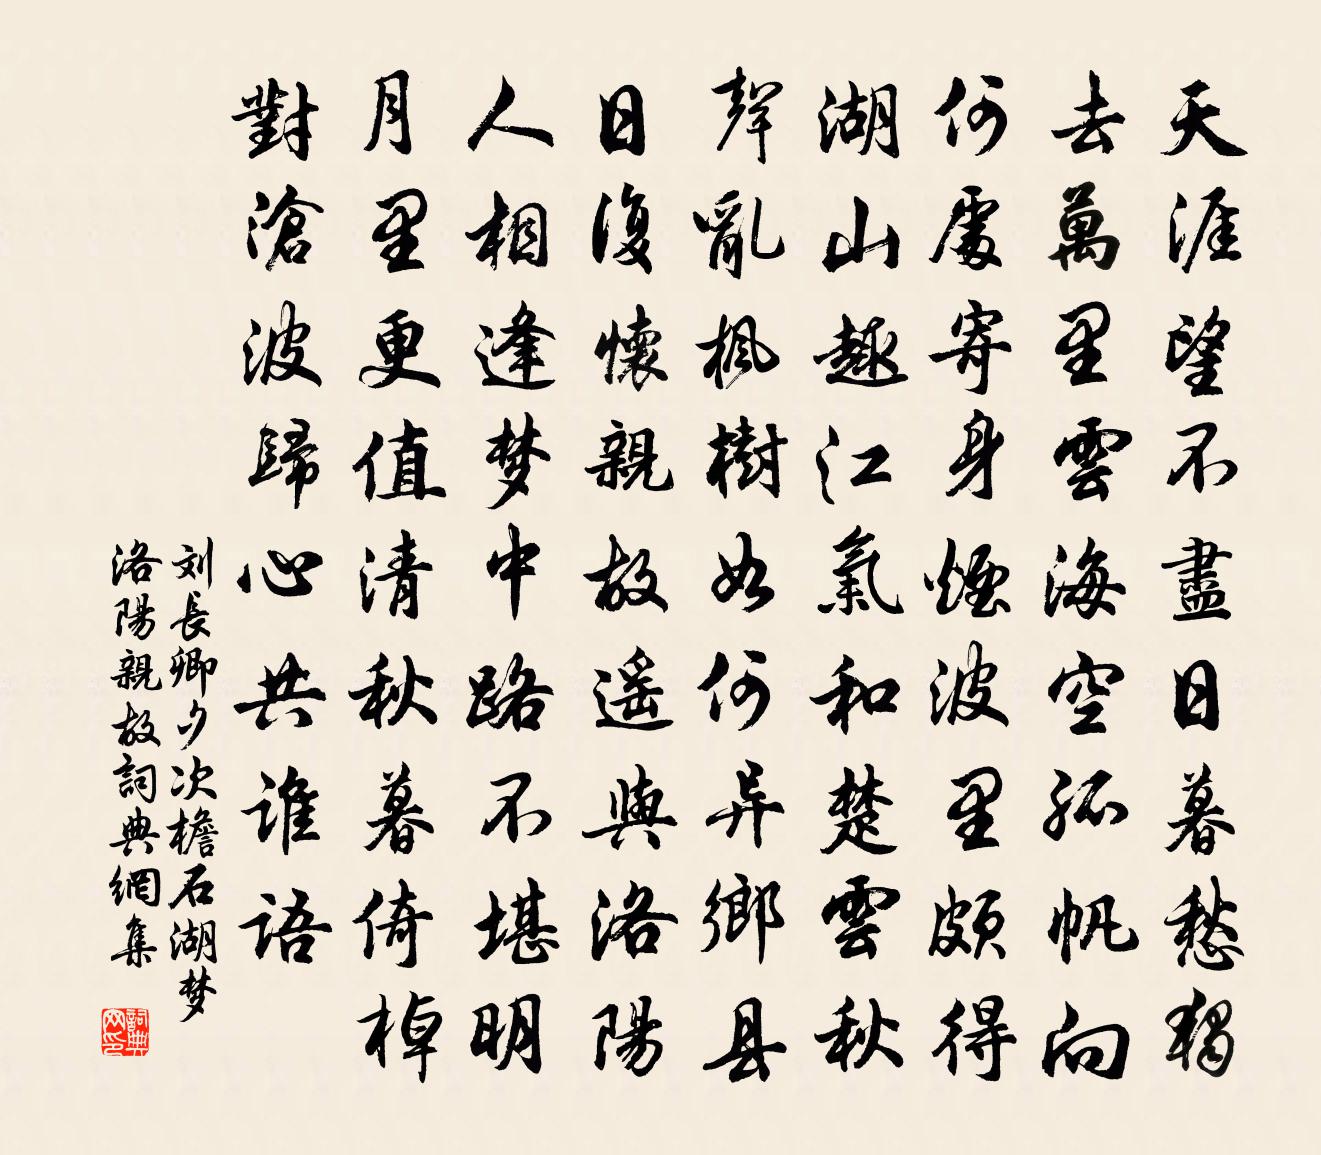 天涯望不盡日暮愁獨
去萬里雲海空孤帆向
何處寄身煙波里頗得
湖山趣江氣和楚雲秋
聲亂楓樹如何异鄉县
日復懷親故遥與洛陽
人相逢梦中路不堪明
月里更值清秋暮倚棹
對滄波歸心共谁語
刘長卿夕次檐石湖梦
洛陽親故詞典網集
詞典网印